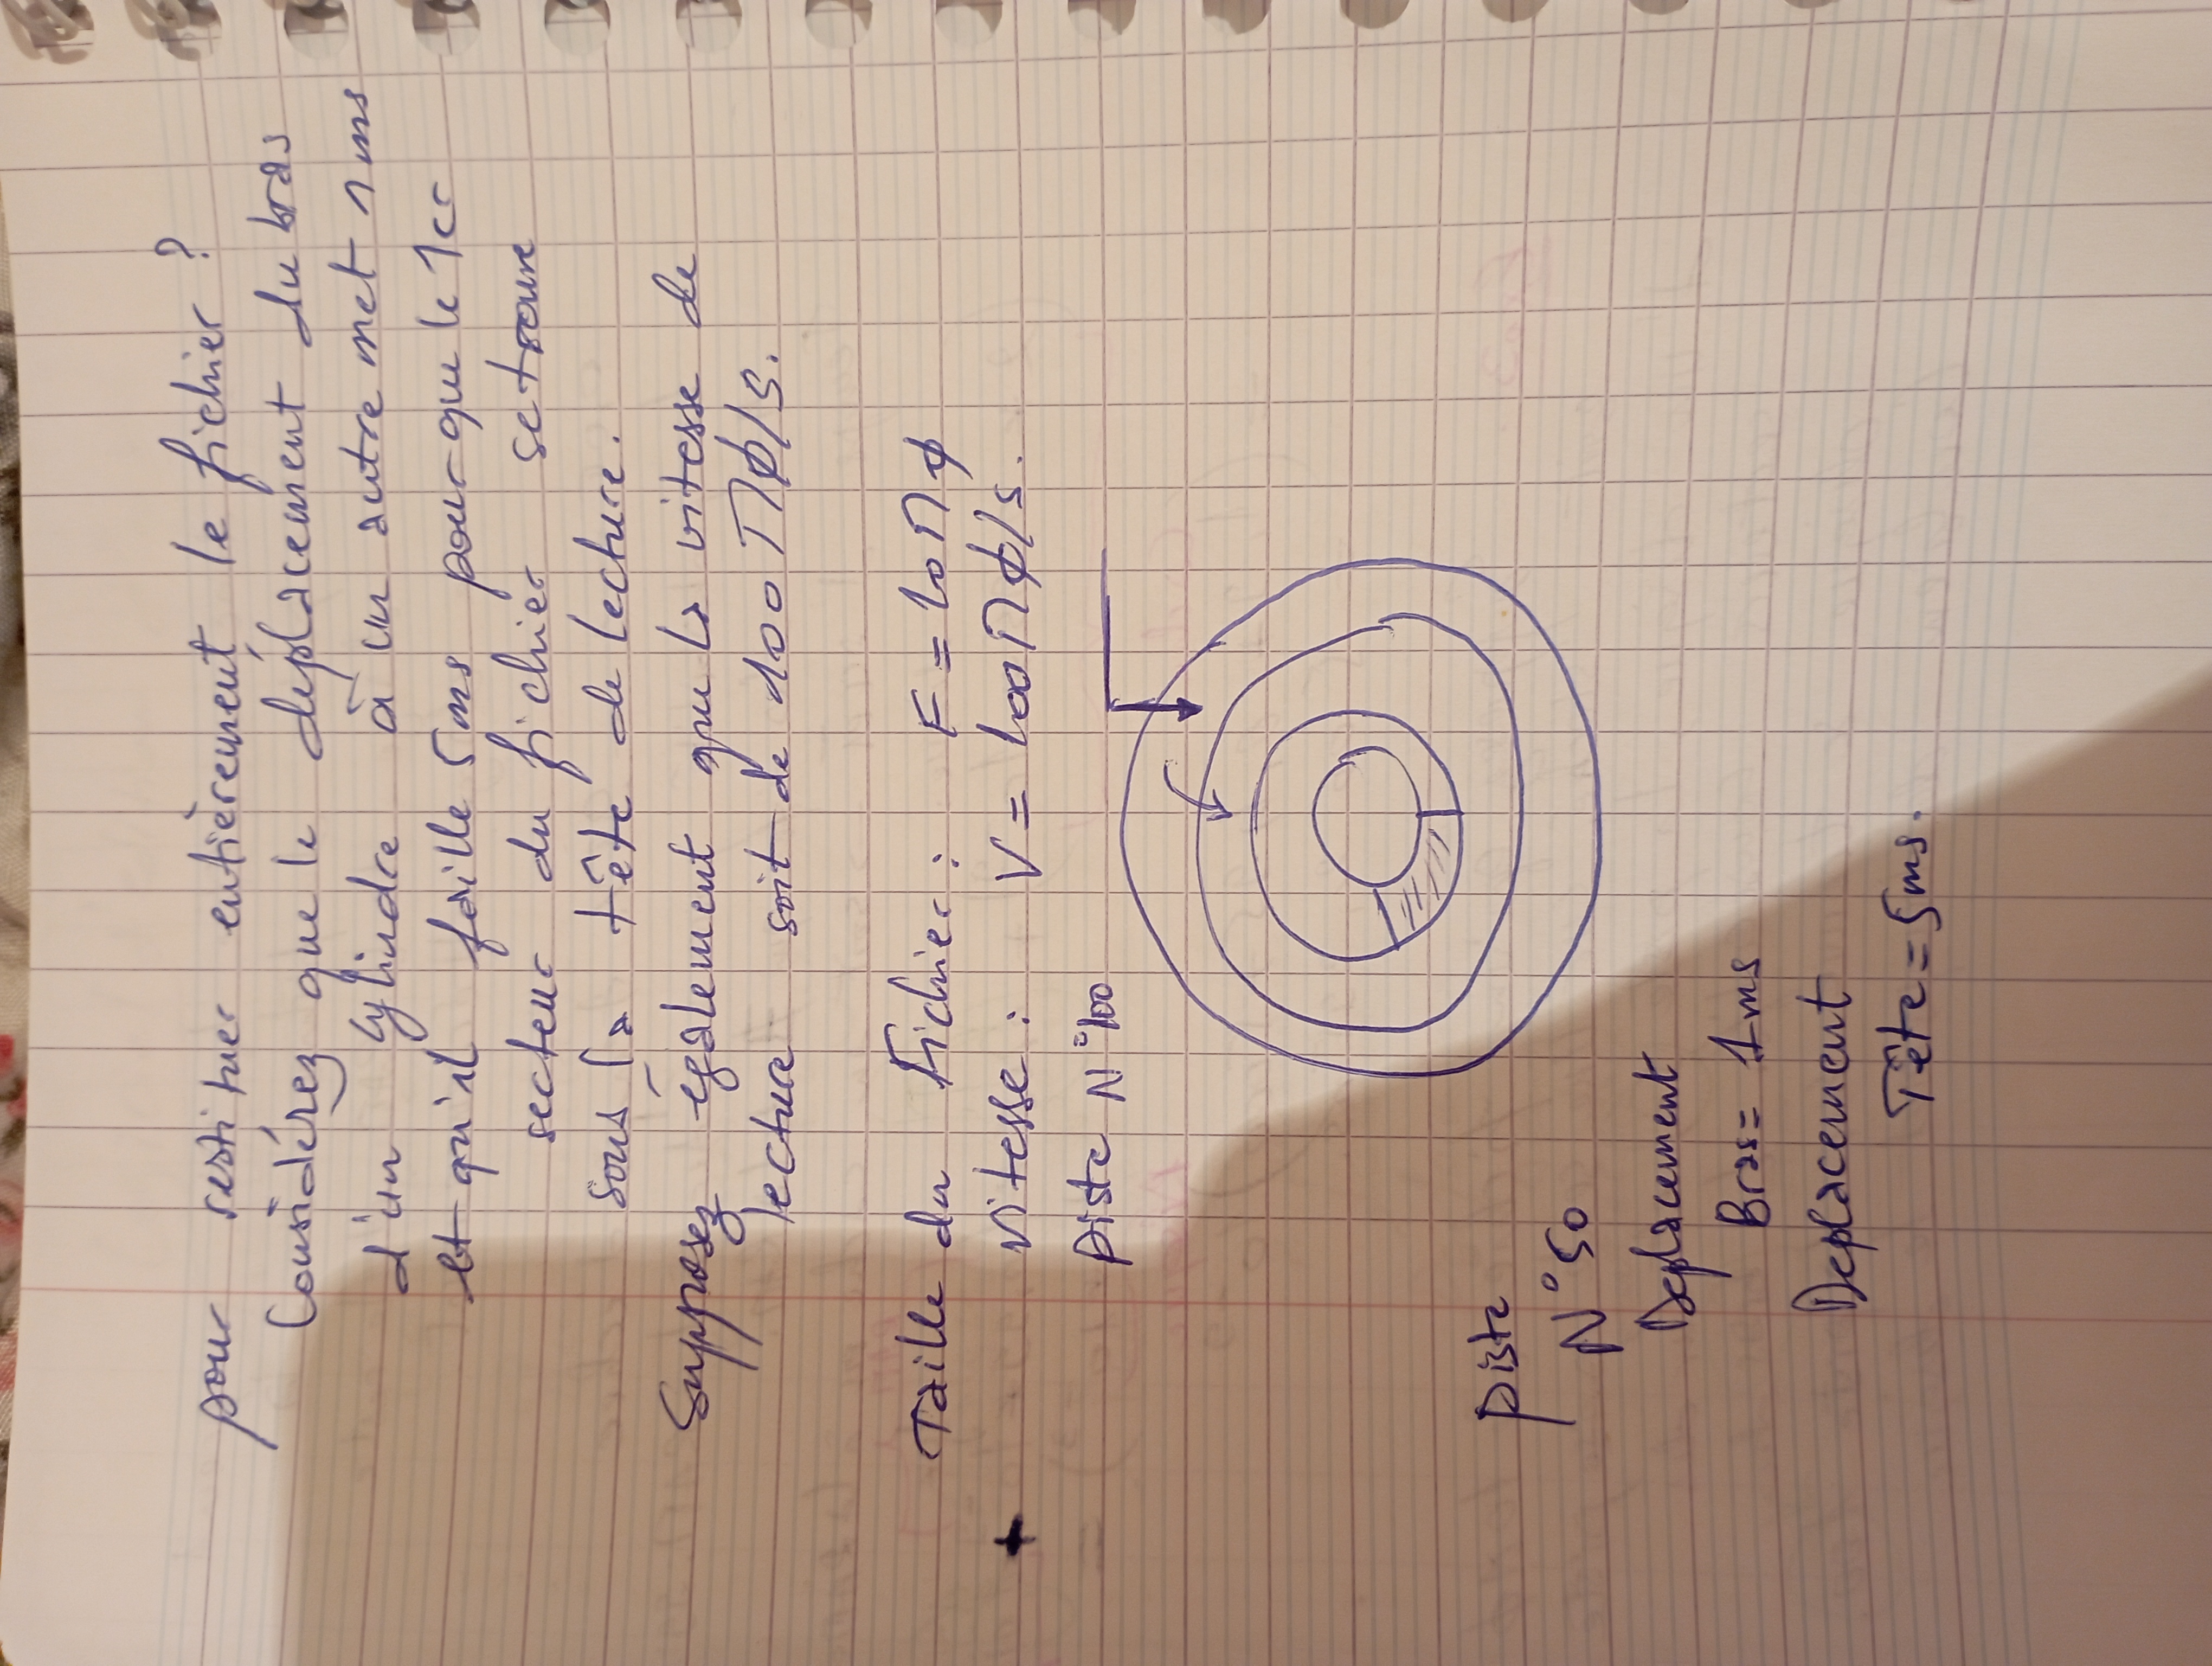 pour restituer entièrement le fichier ?
Considérez que le déplacement du bras
d'un cylindre à un autre met 1 ms
et qu'il faille 5 ms pour que le 1er
secteur du fichier se trouve
sous la tête de lecture.
Supposez également que la vitesse de
lecture soit de 100 Mo/s.
Taille du fichier : F = 10 Mo
Vitesse : V = 100 Mo/s.
piste N°100
piste
N°50
Deplacement
Bras = 1 ms
Deplacement
Tête = 5 ms.